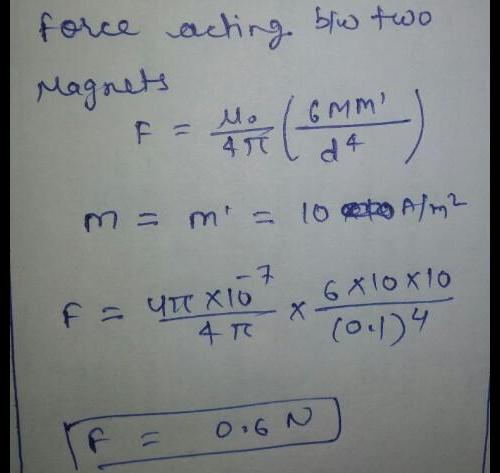 force acting b/w two
Magnets
F = μ₀/4π (6MM'/d⁴)
m = m' = 10 A/m²
F = 4π×10⁻⁷/4π × 6×10×10/(0.1)⁴
F = 0.6 N